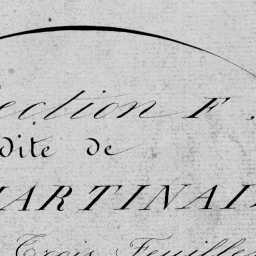 ection F.
dite de
MARTINAI
Trois Feuilles